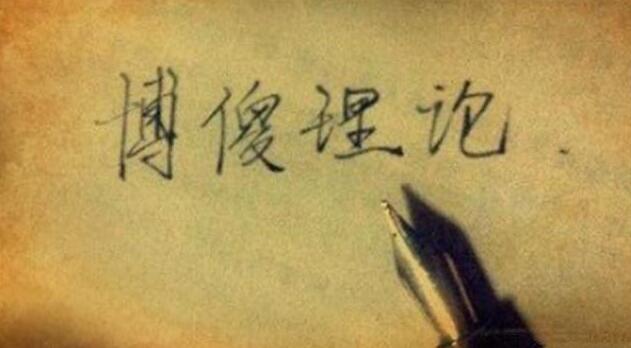 博傻理论.